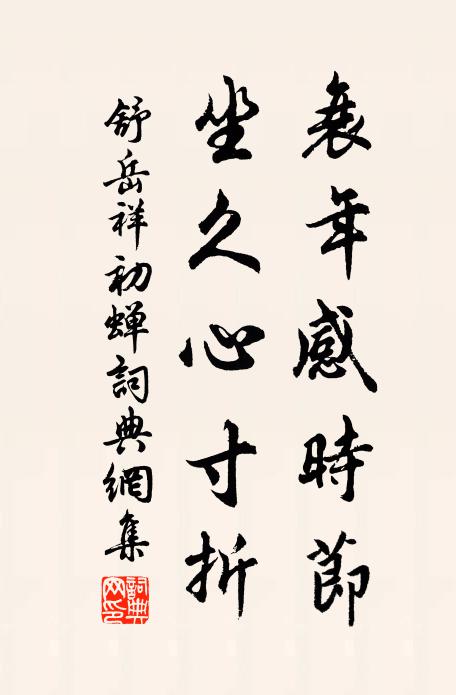 衰年感時節
坐久心寸折
舒岳祥初蝉詞典網集
詞典网印